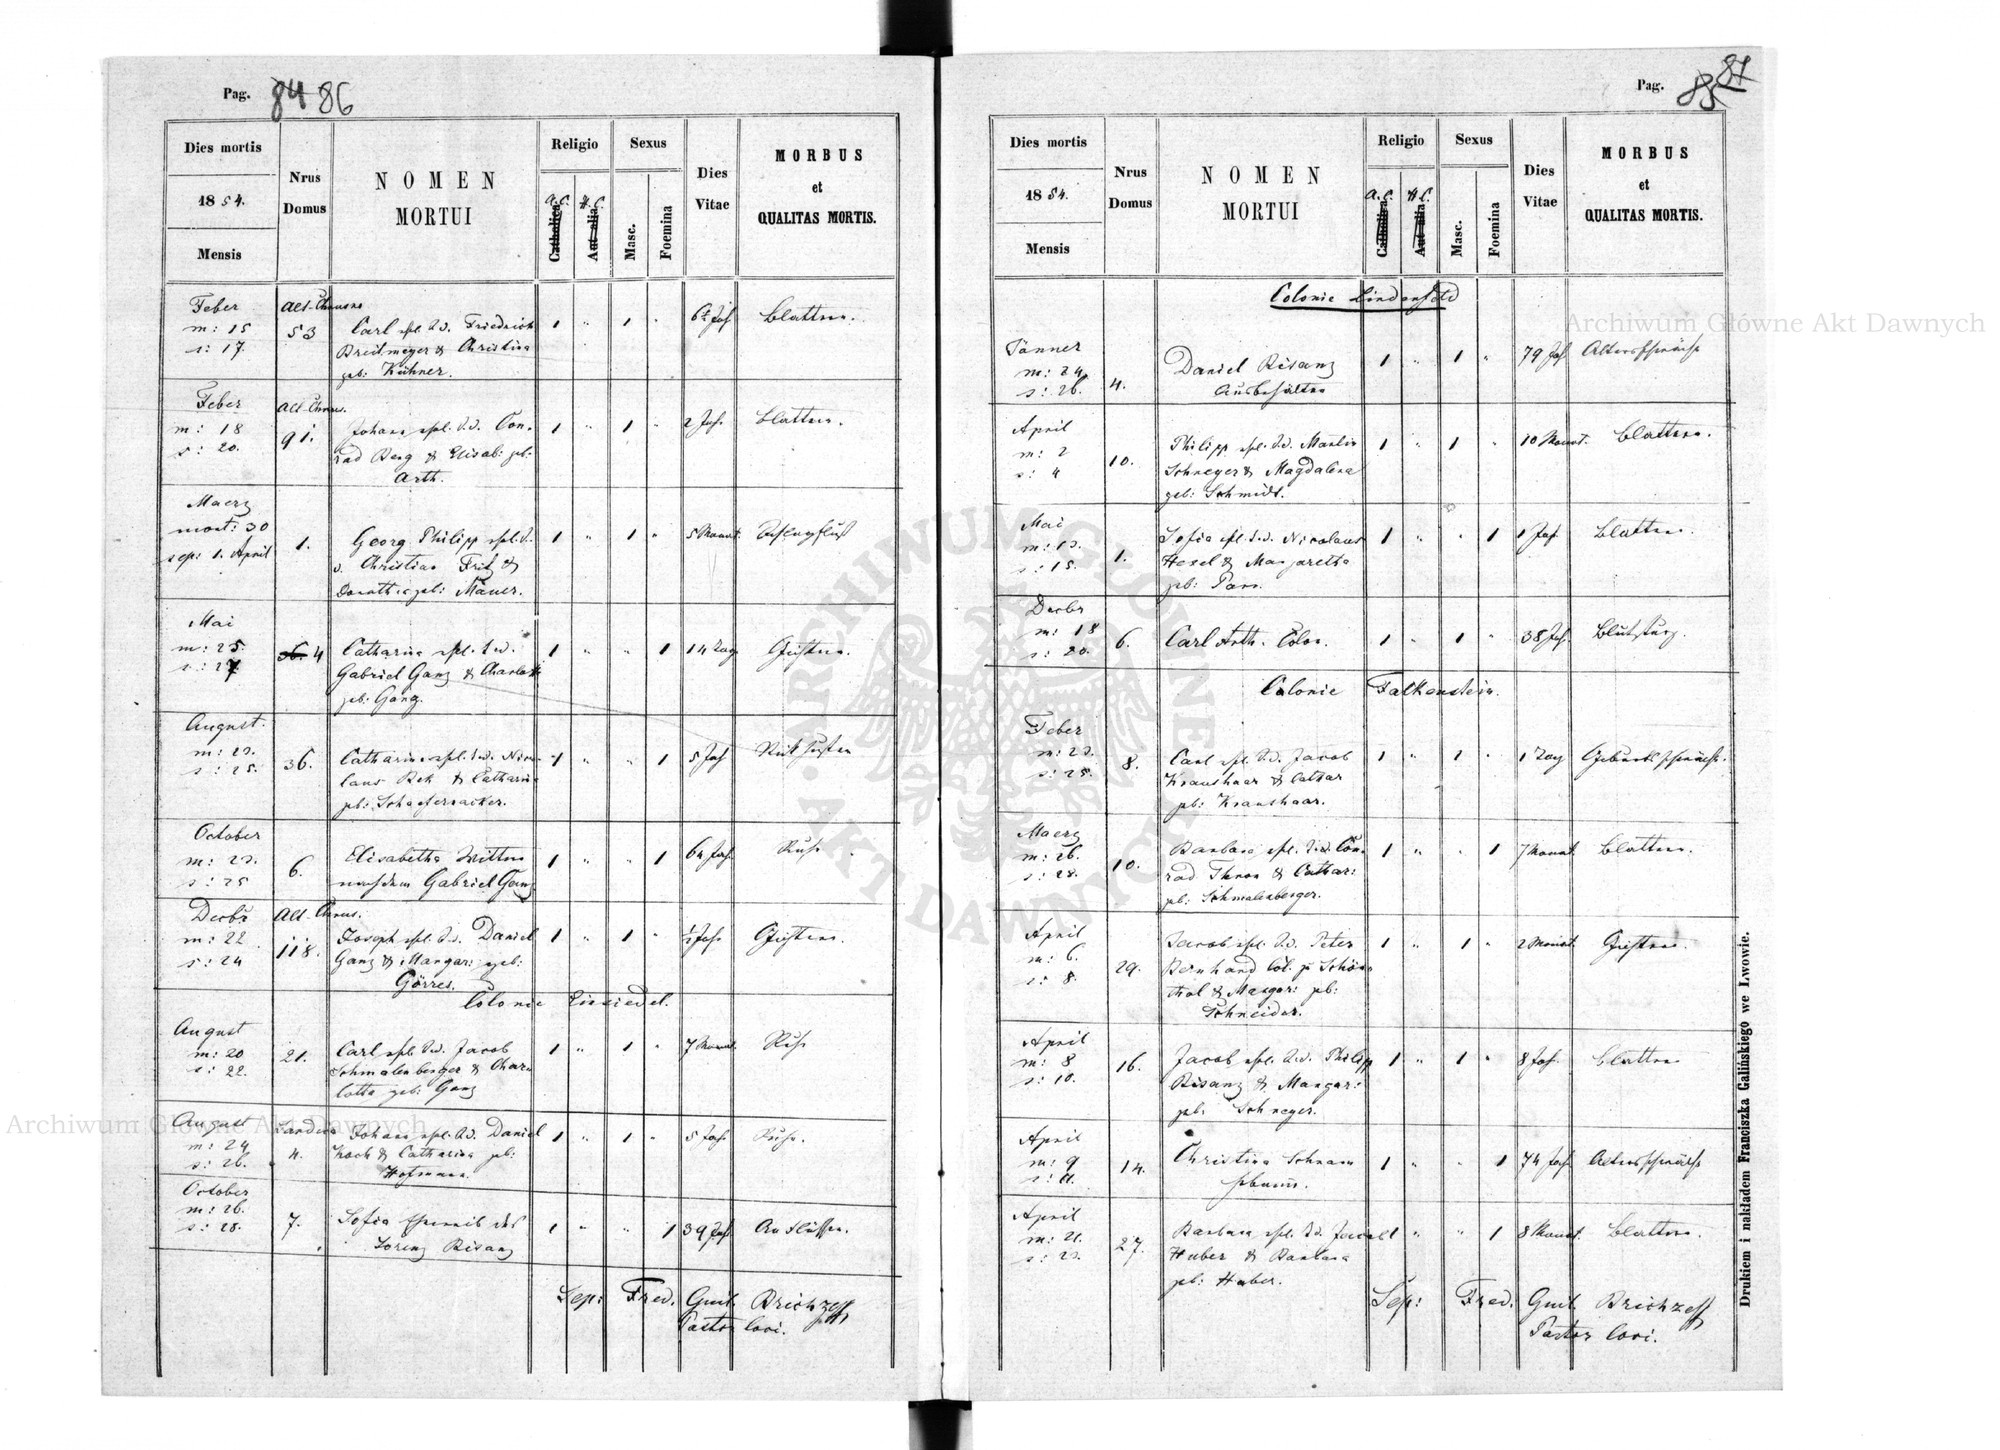 Pag. 84 86
Dies mortis
1854.
Mensis
Nrus
Domus
NOMEN
MORTUI
Religio
A.C. H.C.
Catholica
Aut alia
Sexus
Masc.
Foemina
Dies
Vitae
MORBUS
et
QUALITAS MORTIS.
Feber
m: 15
s: 17.
53
Carl spl. d. Friedrich
Breitmeyer & Christina
geb: Kühner.
1 " 1 "
Blattern.
Feber
m: 18
s: 20.
91.
Johann spl. d. Con-
rad Berg & Elisab: geb:
Arth.
1 " 1 "
2 Jah.
Blattern.
Maerz
mort: 30
sep: 1. April
1.
Georg Philipp spl. d.
Christian Fritz &
Dorothea geb: Mauer.
1 " 1 "
5 Monat.
Mai
m: 25.
s: 27
36. 4
Catharina spl. d.
Gabriel Ganz & Charlott
geb: Gang.
1 " " 1
14 Tag
August.
m: 23.
s: 25.
36.
Catharina spl. d. Nico-
laus Bek & Catharina
geb: Schaeferacker.
1 " " 1
5 Jah
October
m: 23.
s: 25
6.
Elisabetha Wittwe
nach dem Gabriel Ganz
1 " " 1
64 Jah.
Ruhr
Decbr
m: 22
s: 24
118.
Joseph spl. d. Daniel
Ganz & Margar: geb:
Görres.
1 " 1 "
½ Jah.
Colonie Einsiedel.
August
m: 20
s: 22.
21.
Carl spl. d. Jacob
Schmalenberger & Char-
lotta geb: Ganz
1 " 1 "
7 Monat.
Ruhr
August
m: 24
s: 26.
4.
Johann spl. d. Daniel
Koch & Catharina geb:
Hofmann.
1 " 1 "
5 Jah.
Ruhr.
October
m: 26.
s: 28.
7.
Sofia Eheweib des
Lorenz Bisanz
1 " " 1
39 Jah
Sep: Fred. Guil. Brichzeff
Pastor loci.
Pag. 85 87
Dies mortis
1854.
Mensis
Nrus
Domus
NOMEN
MORTUI
Religio
A.C. H.C.
Catholica
Aut alia
Sexus
Masc.
Foemina
Dies
Vitae
MORBUS
et
QUALITAS MORTIS.
Colonie Lindenfeld
Jänner
m: 24
s: 26.
4.
Daniel Bisanz
Ausbehälter
1 " 1 "
79 Jah
Altersschwäche
April
m: 2
s: 4
10.
Philipp spl. d. Martin
Schneyer & Magdalena
geb: Schmidt.
1 " 1 "
10 Monat.
Blattern.
Mai
m: 13.
s: 15.
1.
Sofia spl. d. Nicolaus
Hesel & Margaretha
1 " " 1
1 Jah
Blattern.
Decbr
m: 18
s: 20.
6.
Carl Arth. Colon.
1 " 1 "
38 Jah.
Blutsturz.
Colonie Falkenstein.
Feber
m: 23.
s: 25.
8.
Carl spl. d. Jacob
Kraushaar & Cathar
geb: Kraushaar.
1 " 1 "
1 Tag
Maerz
m: 26.
s: 28.
10.
Barbara spl. d. Con-
rad Thron & Cathar:
geb: Schmalenberger.
1 " " 1
7 Monat
Blattern.
April
m: 6.
s: 8.
29.
Jacob spl. d. Peter
Bernhard Col. zu Schön-
thal & Margar: geb:
Schneider.
1 " 1 "
2 Monat.
April
m: 8
s: 10.
16.
Jacob spl. d. Philipp
Bisanz & Margar:
geb: Schneyer.
1 " 1 "
8 Jah.
Blattern
April
m: 9
s: 11.
14.
Christina Schram
1 " " 1
74 Jah.
Altersschwäche
April
m: 21.
s: 23.
27.
Barbara spl. d. Jacob
Huber & Barbara
geb: Huber.
1 " " 1
8 Monat.
Blattern.
Sep: Fred. Guil. Brichzeff
Pastor loci.
Drukiem i nakładem Franciszka Galińskiego we Lwowie.
Archiwum Główne Akt Dawnych
Archiwum Główne Akt Dawnych
ARCHIWUM GŁÓWNE AKT DAWNYCH